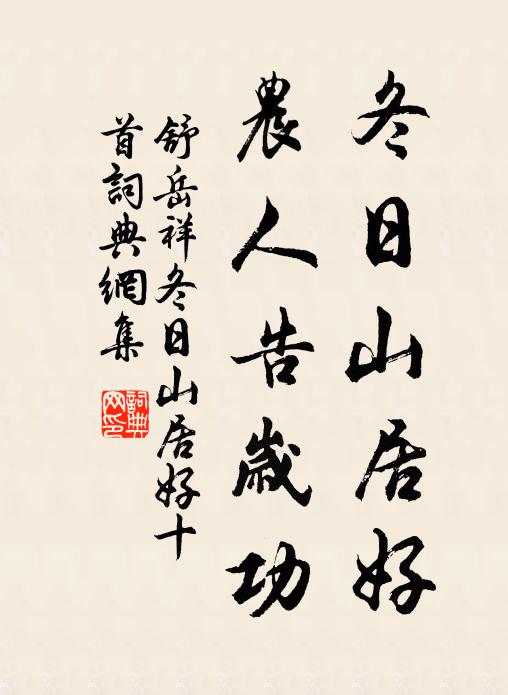 冬日山居好
農人告歲功
舒岳祥冬日山居好十
首詞典網集
詞典
网印